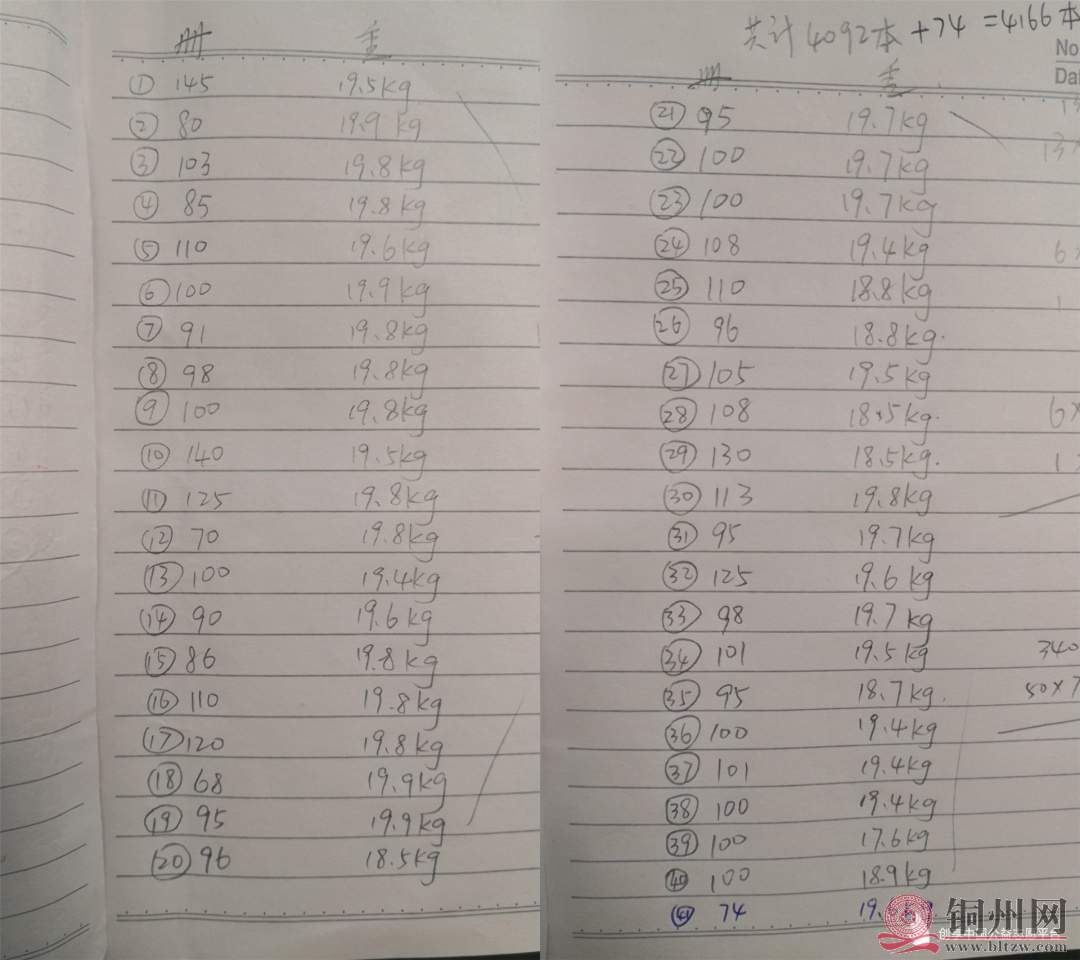 册 重
① 145 19.5kg
② 80 19.9kg
③ 103 19.8kg
④ 85 19.8kg
⑤ 110 19.6kg
⑥ 100 19.9kg
⑦ 91 19.8kg
⑧ 98 19.8kg
⑨ 100 19.8kg
⑩ 140 19.5kg
⑪ 125 19.8kg
⑫ 70 19.8kg
⑬ 100 19.4kg
⑭ 90 19.6kg
⑮ 86 19.8kg
⑯ 110 19.8kg
⑰ 120 19.8kg
⑱ 68 19.9kg
⑲ 95 19.9kg
⑳ 96 18.5kg
共计4092本+74=4166本
No
册 重
㉑ 95 19.7kg
㉒ 100 19.7kg
㉓ 100 19.7kg
㉔ 108 19.4kg
㉕ 110 18.8kg
㉖ 96 18.8kg.
㉗ 105 19.5kg
㉘ 108 18.5kg.
㉙ 130 18.5kg.
㉚ 113 19.8kg
㉛ 95 19.7kg
㉜ 125 19.6kg
㉝ 98 19.7kg
㉞ 101 19.5kg 340
㉟ 95 18.7kg. 50×7
㊱ 100 19.4kg
㊲ 101 19.4kg
㊳ 100 19.4kg
㊴ 100 17.6kg
㊵ 100 18.9kg
㊶ 74
铜州网
www.bltzw.com